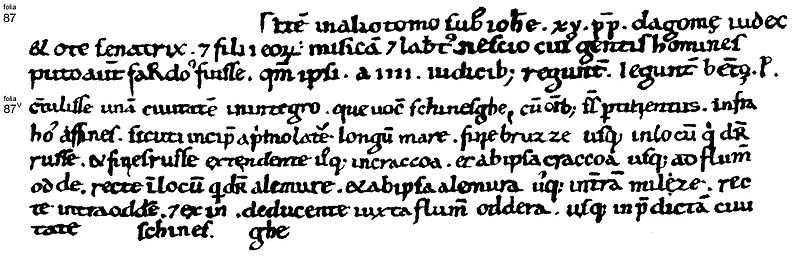 folia
87
Itē in alio tomo sub ioħe . xv . pp̄ . dagome iudex
& ote senatrix . ⁊ filii eoꝝ : misicā ⁊ lābt̄ . nescio cuiꝰ gentis homines
puto autē sardos fuisse . qm̄ ipsi . a iiii . iudicib; regunt̄ . legunt̄ bēto . P .
folia
87v
cōtulisse unā ciuitatē in integro . que uocat̄ schinesghe , cū oīb; suis ptinentiis . infra
hos affines . sicuti incip̄ a primo latere longū mare . fine bruzze usq; in locū q̄ dr̄
russe . & fines russe extendente usq; in craccoa . et ab ipsa craccoa usq; ad flum̄
odde . recte in locū q̄ dr̄ alemure . & ab ipsa alemura usq; in tr̄am milze . rec
te intra oddere . ⁊ exin . deducente iuxta flum̄ oddera . usq; in p̄dictā ciui
tate schines . ghe